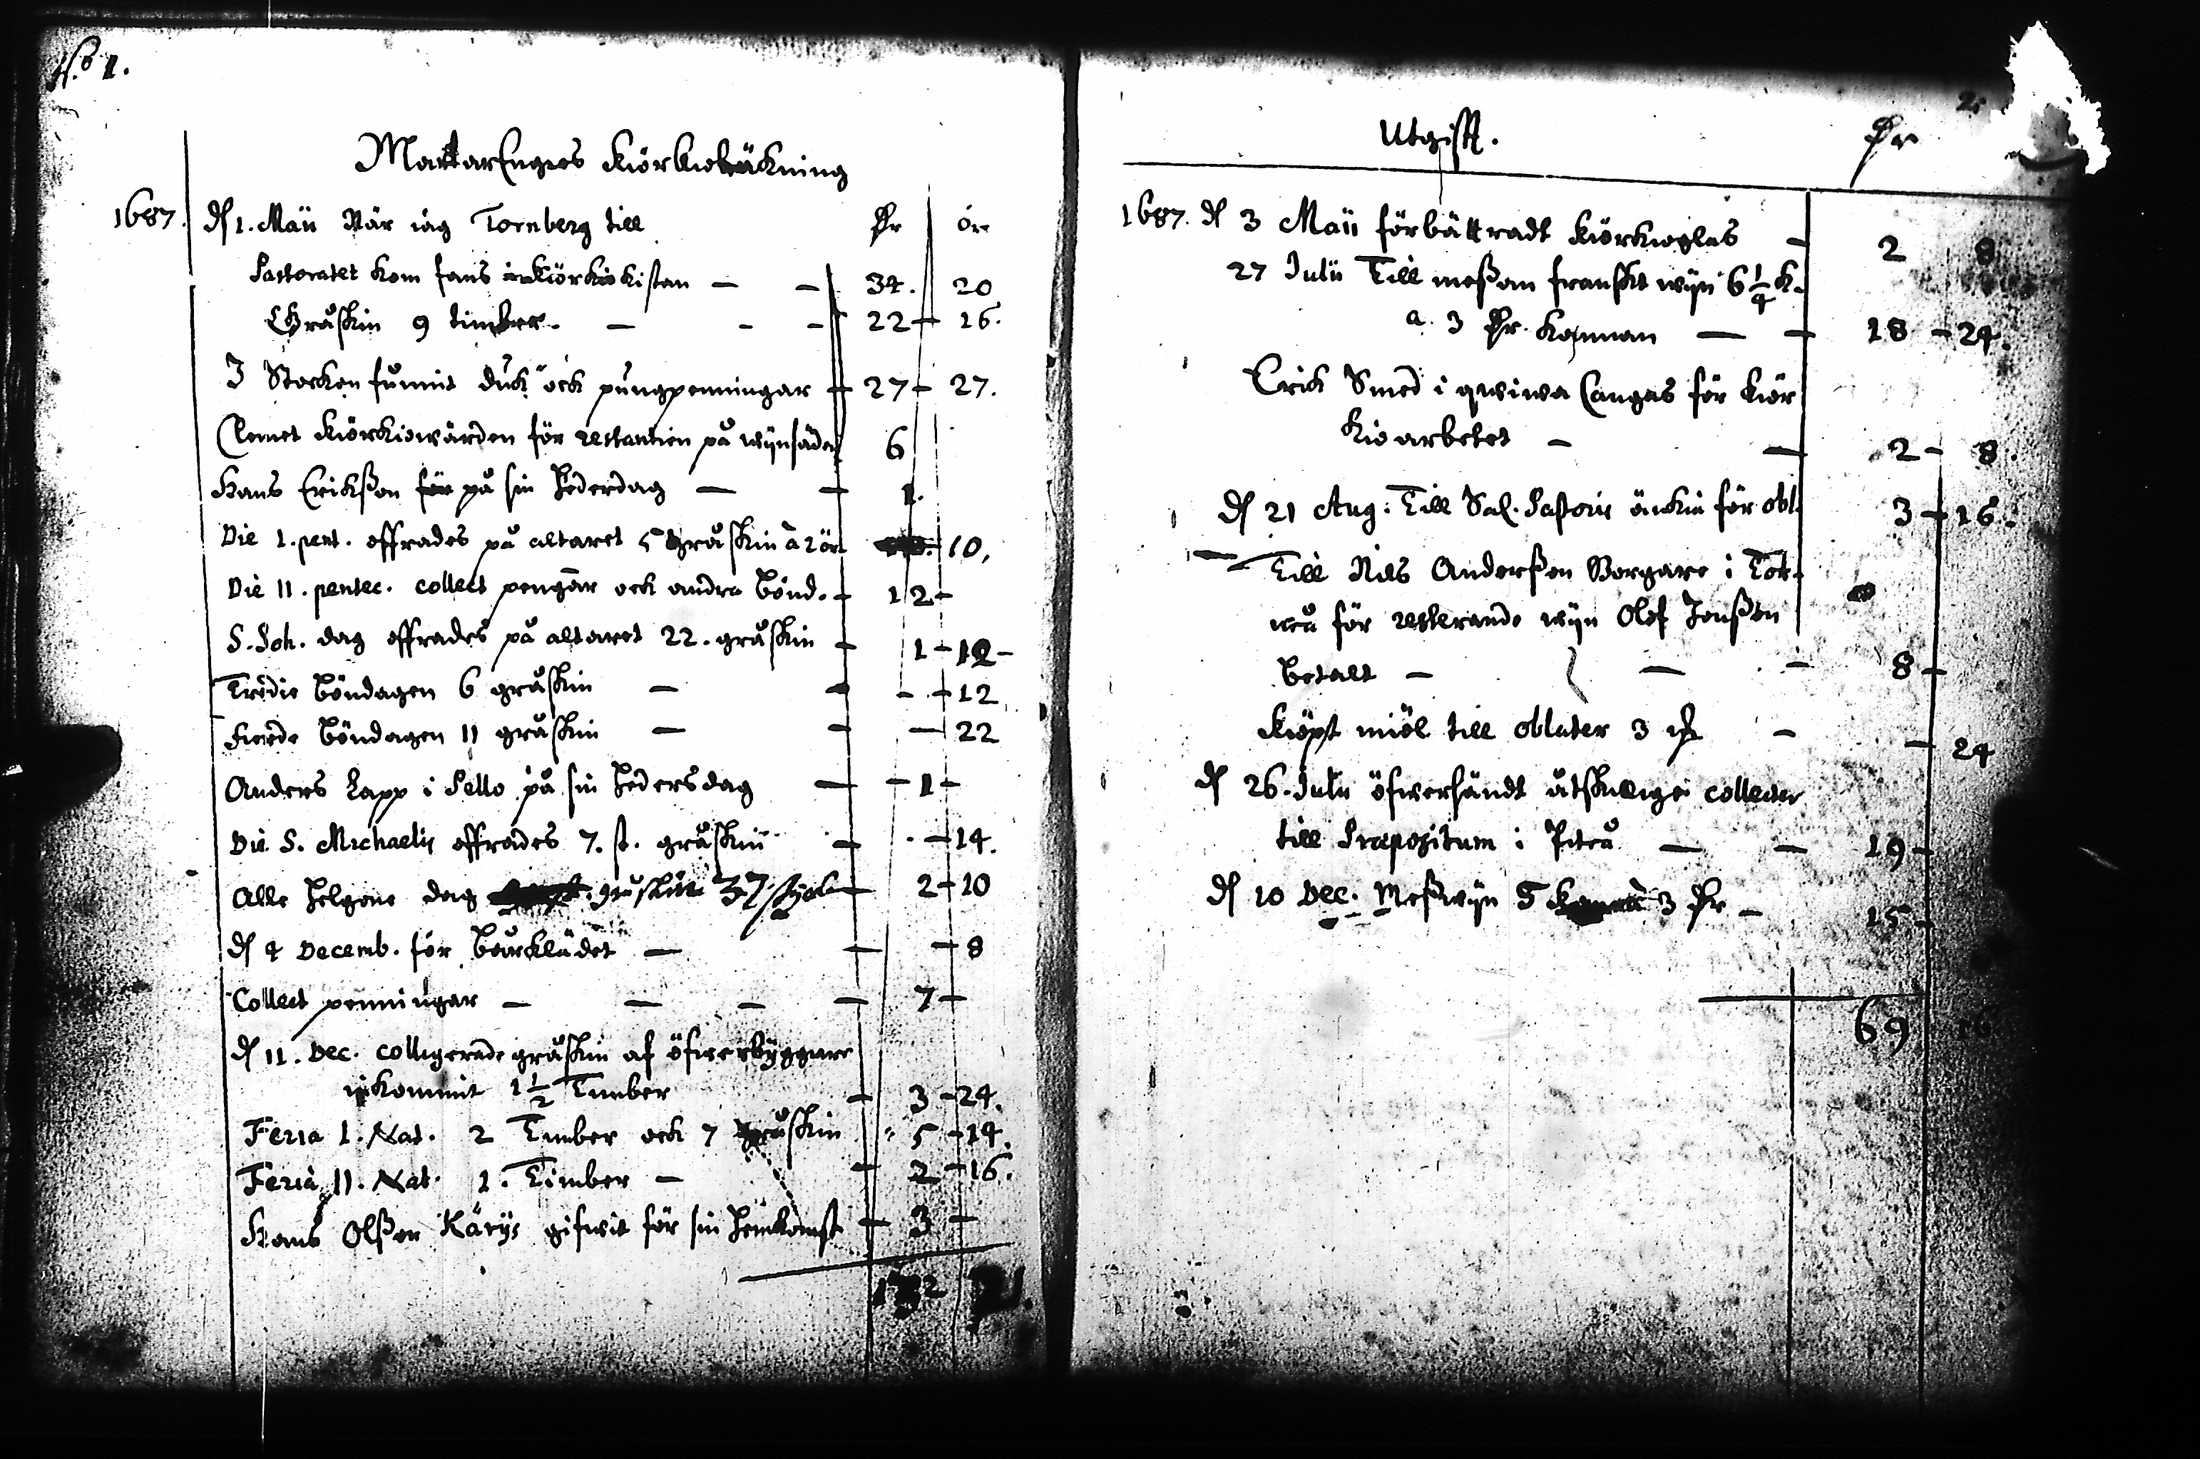 N.o 1.
MattarEngies Kiörkioräkning
1687. d 1. Maii När iag Tornberg till Dr ör
Pastoratet kom fans i Kiörkiokistan — — 34. 20
Gråskin 9 timber. — - - 22 - 16.
I Stocken funnit duk ock pungpenningar - 27 - 27.
Clemet Kiörkiowärden för restantien på wijnsäden 6
Hans Erikßon för på sin Hedersdag — — 1.
Die 1. pent. offrades på altaret 5 gråskin à 2 ör 10.
Die 11. pentec. collect pengar ock andra Bönd. - 12 -
S. Joh. dag offrades på altaret 22. gråskin - 1 - 12 -
Tredie Böndagen 6 gråskin — - - - 12
Fierde Böndagen 11 gråskin — - — 22
Anders Lapp i Pello på sin Hedersdag — - 1 -
Die S. Michaelis offrades 7. st. gråskin - - 14.
Alle Helgone dag gråskin 37 stycken 2 - 10
d 4 Decemb. för Bårklädet — — - 8
Collect penningar — — — — 7 -
d 11. Dec. colligerade gråskin af öfwerbyggare
inkommit 1 1/2 Timber - 3 - 24.
Feria 1. Nat. 2 Timber ock 7 gråskin 5 - 14.
Feria 11. Nat. 1. Timber — - 2 - 16.
Hans Olßon Kärijs gifwit för sin Hemkomst - 3 -
2.
Utgift. Dr
1687. d 3 Maii förbättradt Kiörkioglas - 2 8
27 Julii Till meßan franskt wijn 6 1/4 K.
a. 3 Dr Kannan — - 18 - 24.
Erik Smed i qwiwa Cangas för Kiör
kio arbetet — — 2 - 8.
d 21 Aug: Till Sal. Pastoris änkia för obl. 3 - 16.
Till Nils Anderßon Borgare i Tor-
neå för resterande wijn Olof Jonßon
betalt — — - 8 -
Kiöpt miöl till oblater 3 - - 24
d 26. Julii öfwersändt åtskillige collecter
till Præpositum i Piteå — - 19 -
d 10 Dec. Meßwijn 5 à 3 Dr - 15 -
69 16